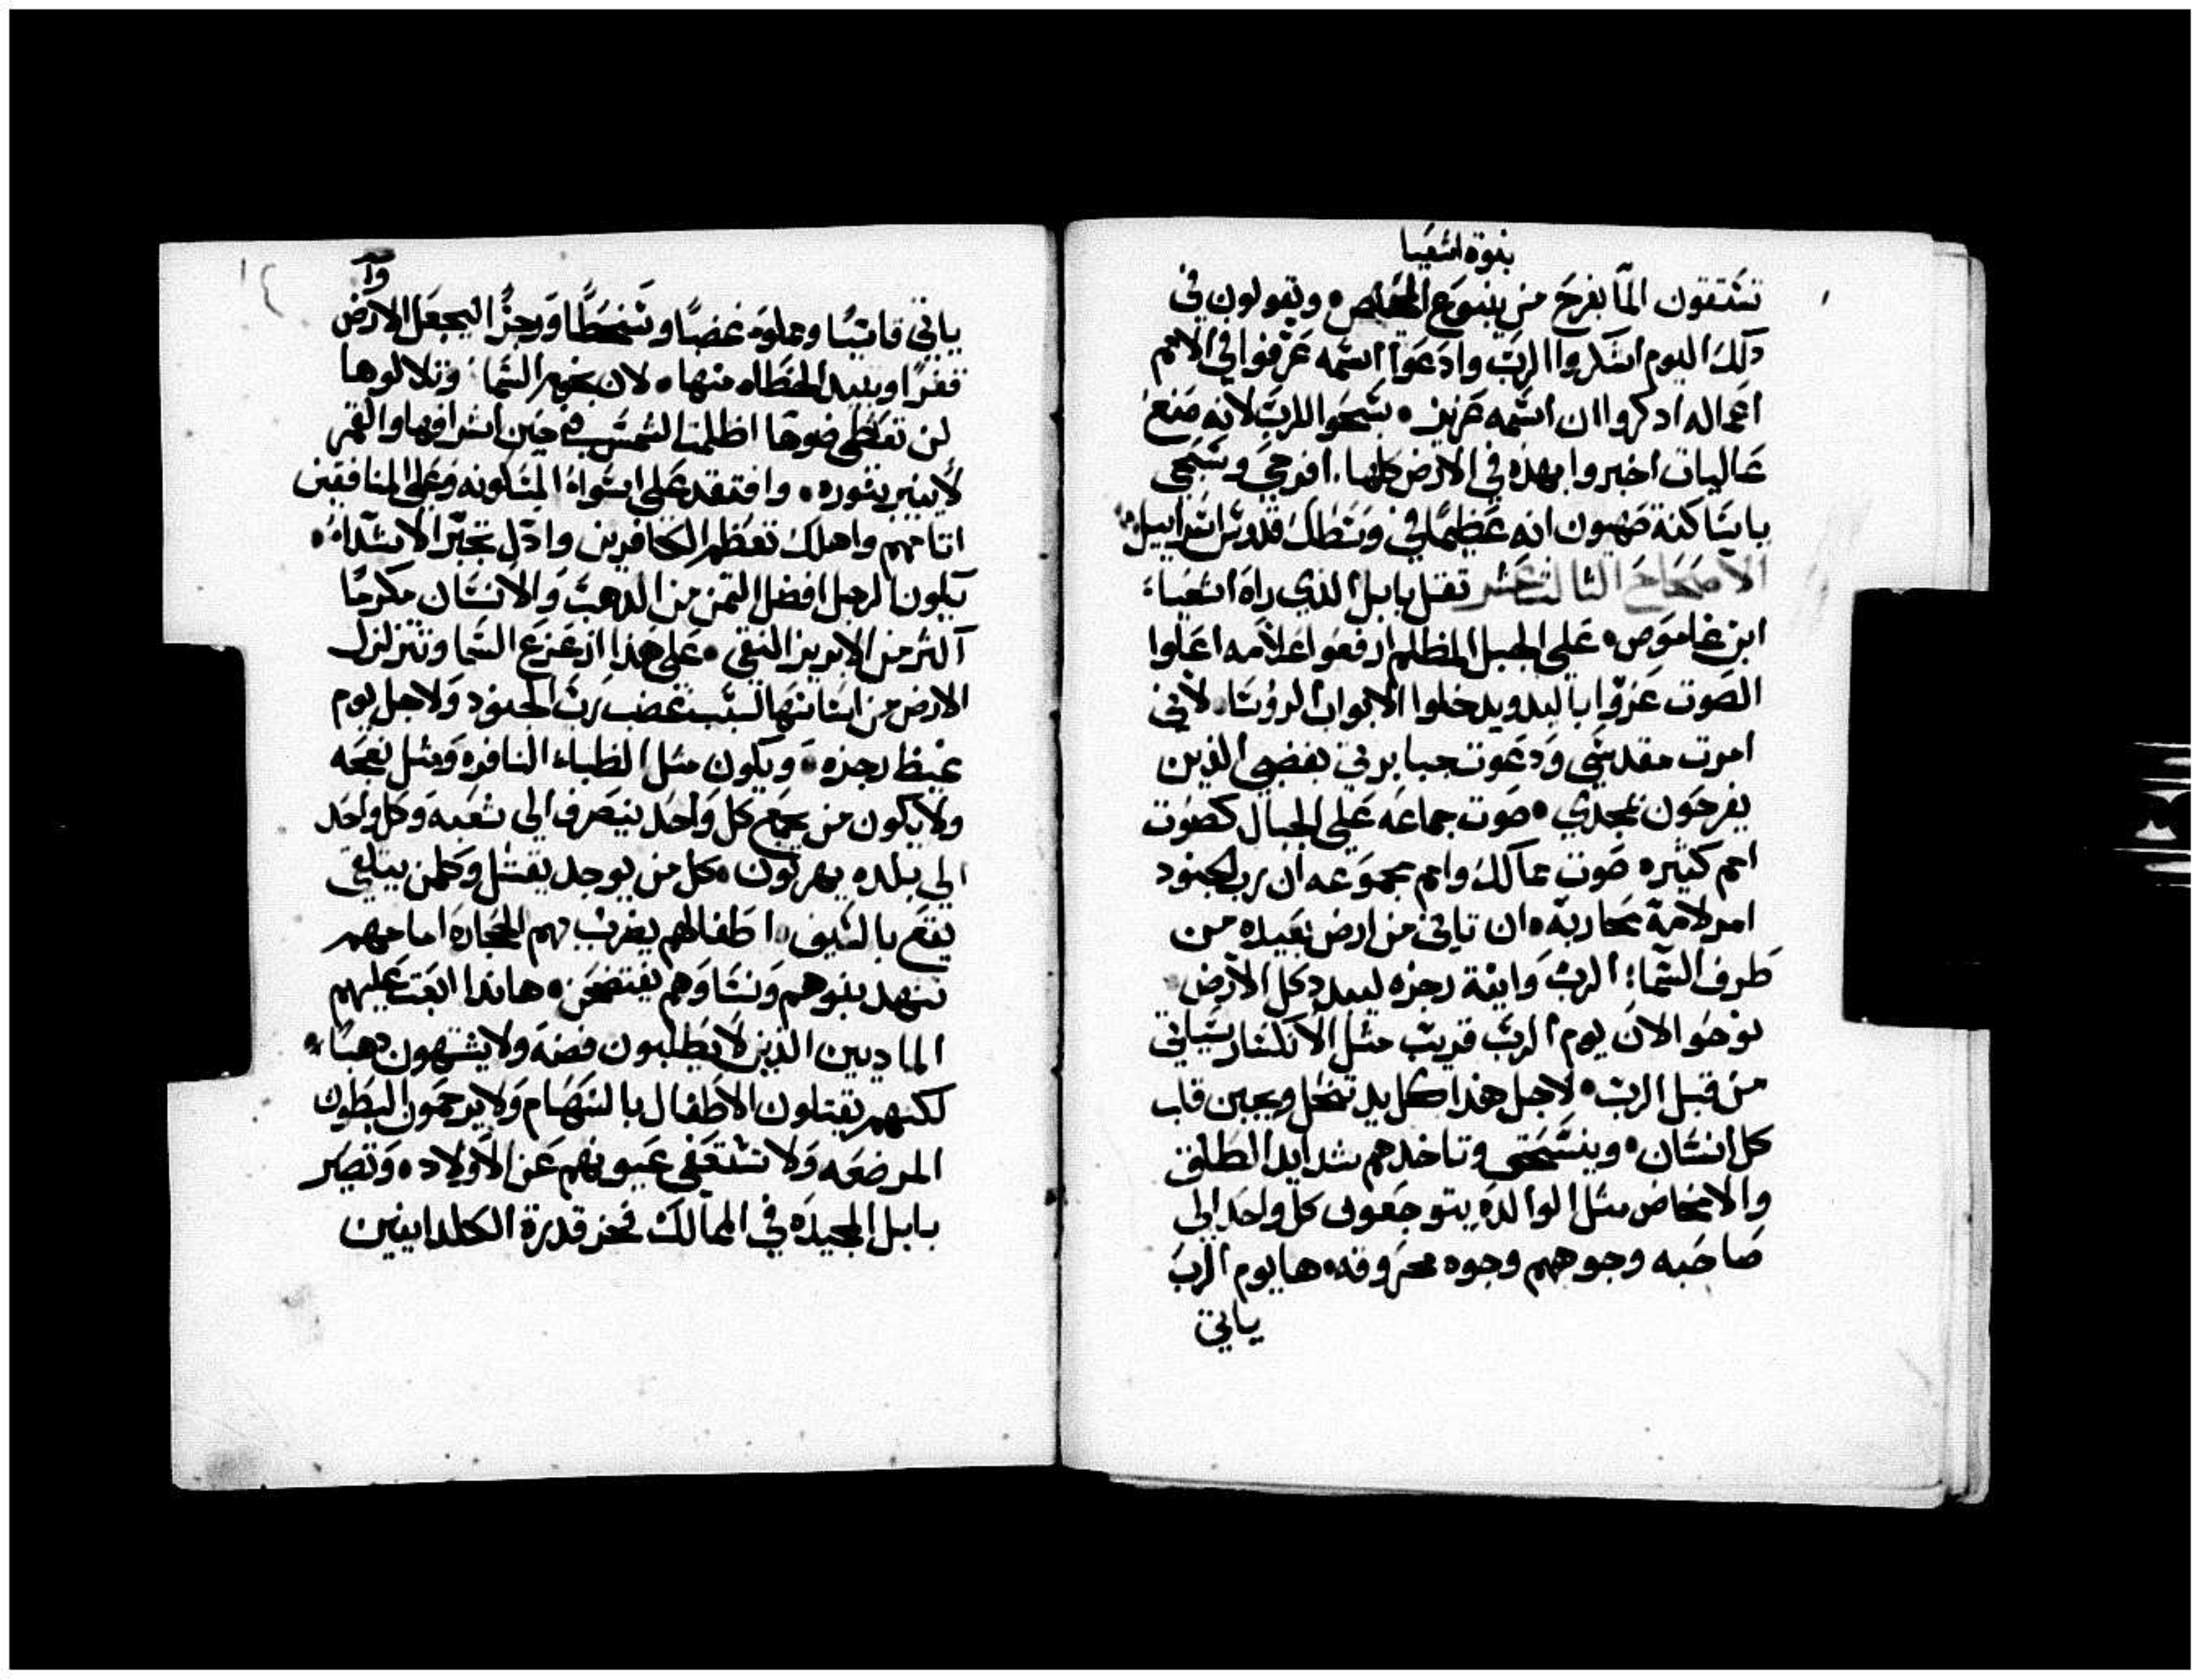 نبوة اشعيا
تستقون الما بفرح من ينبوع المخلص ۰ وتقولون في
دلك اليوم اشكروا الرب وادعوا اسمه عرفوا في الامم
اعماله ادكروا ان اسمه عزيز ۰ سبحوا للرب لانه صنع
عاليات اخبروا بهذه في الارض كلها ۰ افرحي وسبحي
يا ساكنة صهيون انه عظيما في وسطك قدوس اسراييل
الاصحاح الثالث عشر تقل بابل الذي راه اشعيا
ابن عاموص ۰ على الجبل المظلم ارفعوا علامه اعلوا
الصوت عزوا باليد ويدخلوا الابواب الروسا ۰ لاني
امرت مقدسي ودعوت جبابرتي بغضبي الذين
يفرحون بمجدي ۰ صوت جماعه على الجبال كصوت
امم كثيره صوت ممالك وامم مجموعه ان رب الجنود
امر لامة محاربة ۰ ان تاتي من ارض بعيده من
طرف السما ۰ الرب وانية رجزه ليبدد كل الارض
نوحوا لان يوم الرب قريب مثل الانكسار سياتي
من قبل الرب ۰ لاجل هذا كل يد تنحل ويجبن قلب
كل انسان ۰ وينسحق وتاخدهم شدايد الطلق
والامخاض مثل الوالده يتوجعون كل واحد الى
صاحبه وجوههم وجوه محروقه ۰ ها يوم الرب
ياتي
ياتي قاسيا ومملوه غضبا وسخطا ورجزا ليجعل الارض
قفرا ويبيد الخطاه منها ۰ لان نجوم السما وتلالوها
لن تعطي ضوها اظلمت الشمس في حين اشراقها والقمر
لا ينير بنوره ۰ وافتقد على اسواء المسكونه وعلى المنافقين
اتامهم واهلك تعظم الكافرين وادل تجبر الاشداء ۰
يكون الرجل افضل التمن من الدهب والانسان مكرما
اكثر من الابريز النقي ۰ على هذا ازعزع السما وتتزلزل
الارض من اساساتها لسبب غضب رب الجنود ولاجل يوم
غيظ رجزه ۰ ويكون مثل الظباء النافره ومثل نعجه
ولا يكون من يجمع كل واحد ينصرف الى شعبه وكل واحد
الى بلده يهربون ۰ كل من يوجد يقتل وكلمن يتلقى
يقع بالسيف ۰ اطفالهم يضرب بهم الحجاره امامهم
تنهب بيوهم ونساوهم يفتضحن ۰ هانذا ابعت عليهم
الماديين الذين لا يطلبون فضه ولا يشتهون دهبا ۰
لكنهم يقتلون الاطفال بالسهام ولا يرحمون البطون
المرضعه ولا تشتفى عيونهم عن الاولاد ۰ وتصير
بابل المجيده في الممالك فخر قدرة الكلدانيين